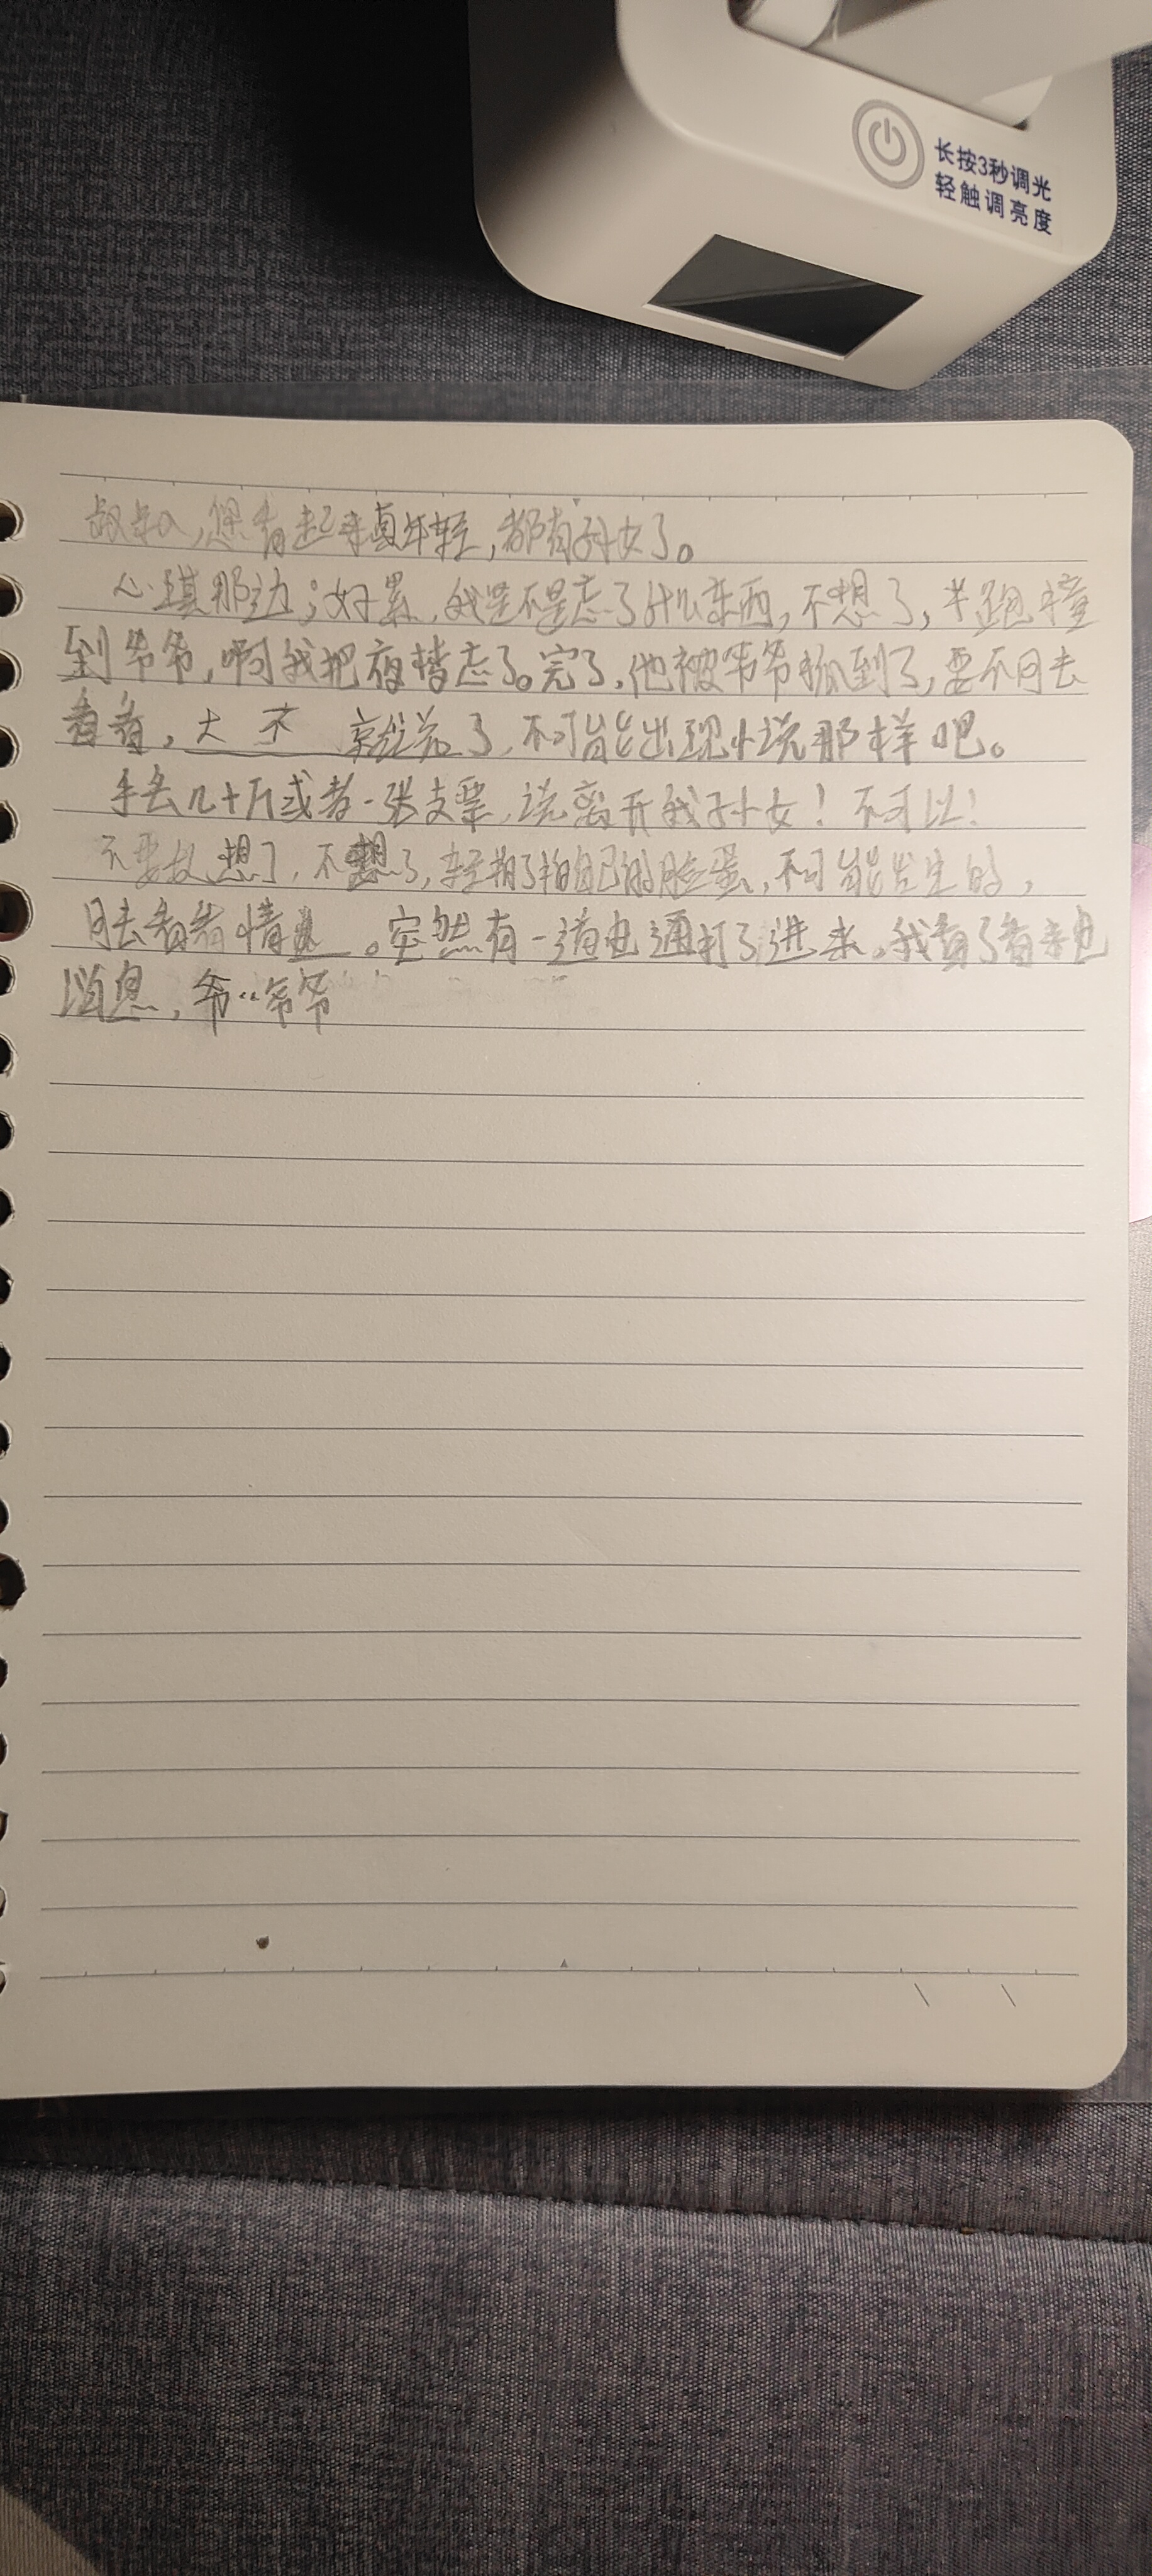 长按3秒调光
轻触调亮度
叔叔,您看起来真年轻,都有孙女了。
心琪那边;好累,我是不是忘了什么东西,不想了,半跑撞
到爷爷,啊我把夜楷忘了。完了,他被爷爷抓到了,要不回去
看看,大不就说了,不可能出现小说那样吧。
手丢几十万或者一张支票,说离开我孙女!不可以!
不要想了,不想了,轻拍了拍自己的脸蛋,不可能发生的,
回去看看情。突然有一道电通打了进来。我看了看来电
消息,爷··爷爷